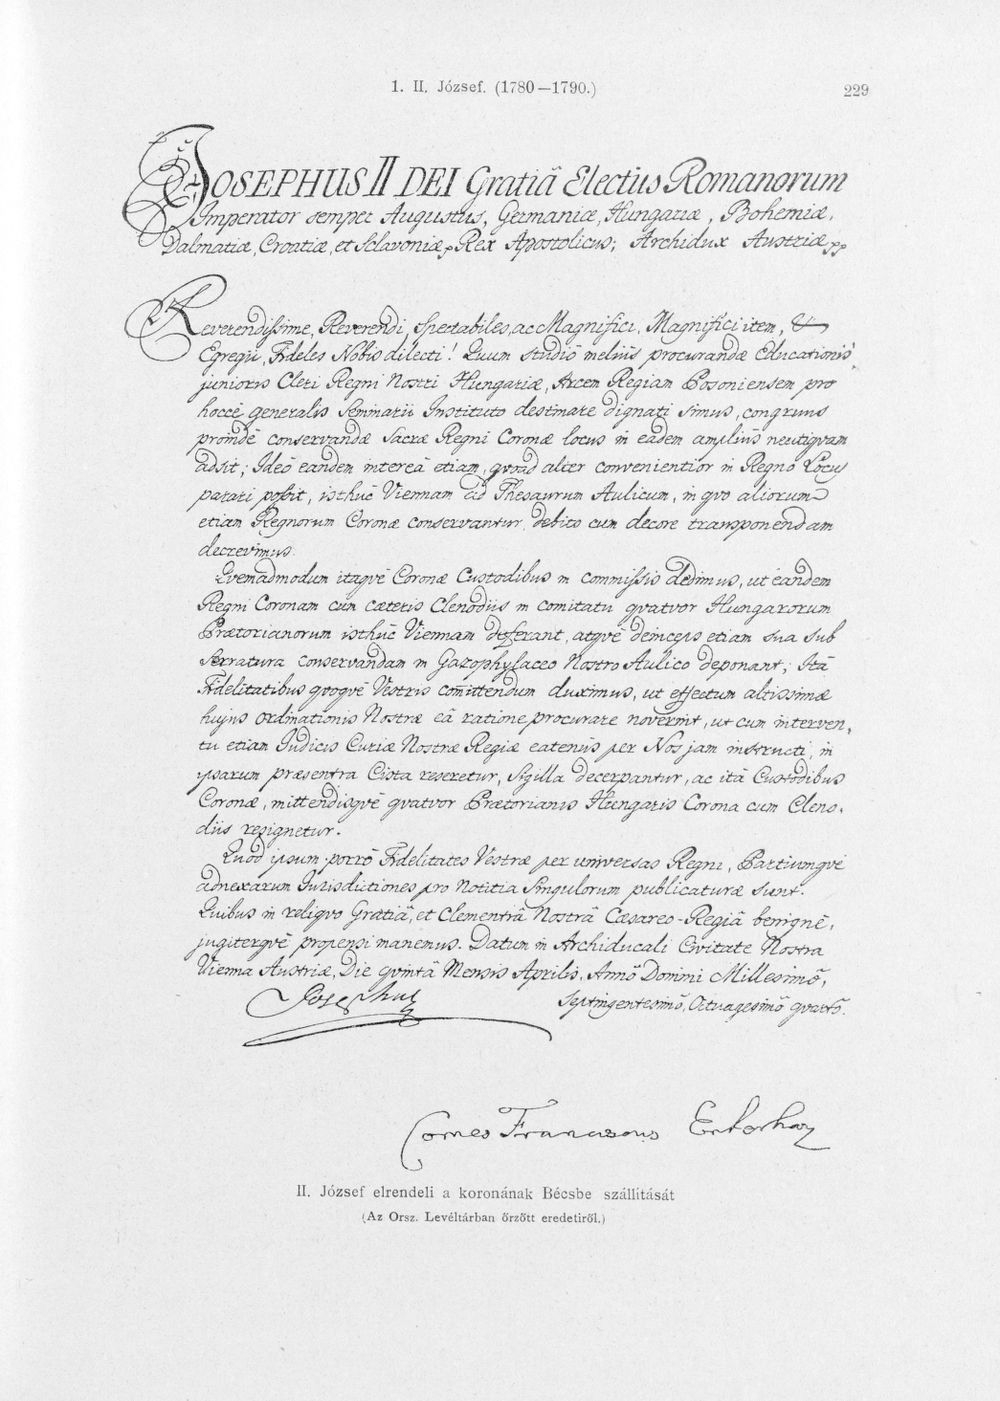 1. II. József. (1780—1790.)
229
JOSEPHUS II DEI Gratiâ Electus Romanorum
Imperator semper Augustus, Germaniæ, Hungariæ, Bohemiæ,
Dalmatiæ, Croatiæ, et Sclavoniæ, Rex Apostolicus; Archidux Austriæ,
Reverendissime, Reverendi, Spectabiles, ac Magnifici, Magnifici item, &
Egregii, Fideles Nobis dilecti! Quum studiô meliùs procurandæ Educationis
junioris Cleri Regni Nostri Hungariæ, Arcem Regiam Posoniensem pro
hocce generalis Seminarii Instituto destinare dignati simus, congruus
proindè conservandæ Sacræ Regni Coronæ locus in eadem ampliùs neutiqvam
adsit; Ideò eandem intereà etiam, qvoad alter convenientior in Regno Locus
parari possit, isthuc Viennam ad Thesaurum Aulicum, in qvo aliorum
etiam Regnorum Coronæ conservantur, debito cum decore transponendam
decrevimus.
Qvemadmodum itaqvè Coronæ Custodibus in commissis dedimus, ut eandem
Regni Coronam cum cæteris Clenodiis in comitatu qvatvor Hungarorum
Prætorianorum isthuc Viennam deferant, atqvè deinceps etiam sua sub
Serratura conservandam in Gazophylaceo Nostro Aulico deponant; Ità
Fidelitatibus qvoqvè Vestris com̄ittendum duximus, ut effectum altissimæ
hujus ordinationis Nostræ eâ ratione procurare noverint, ut cum interven-
tu etiam Judicis Curiæ Nostræ Regiæ eatenùs per Nos jam instructi, in
ipsarum præsentia Cista reseretur, Sigilla decerpantur, ac ità Custodibus
Coronæ, mittendisqvè qvatvor Prætorianis Hungaris Corona cum Cleno-
diis resignetur.
Quod ipsum porrò Fidelitates Vestræ per universas Regni, Partiumqvè
adnexarum Jurisdictiones pro Notitia Singulorum publicaturæ sunt.
Quibus in reliqvo Gratiâ, et Clementiâ Nostrâ Cæsareo-Regiâ benignè,
jugiterqvè propensi manemus. Datum in Archiducali Civitate Nostra
Vienna Austriæ, Die qvintâ Mensis Aprilis, Annô Domini Millesimô,
Septingentesimô, Octuagesimô qvartô.
Josephus
Comes Franciscus Esterhazy
II. József elrendeli a koronának Bécsbe szállítását
(Az Orsz. Levéltárban őrzött eredetiről.)